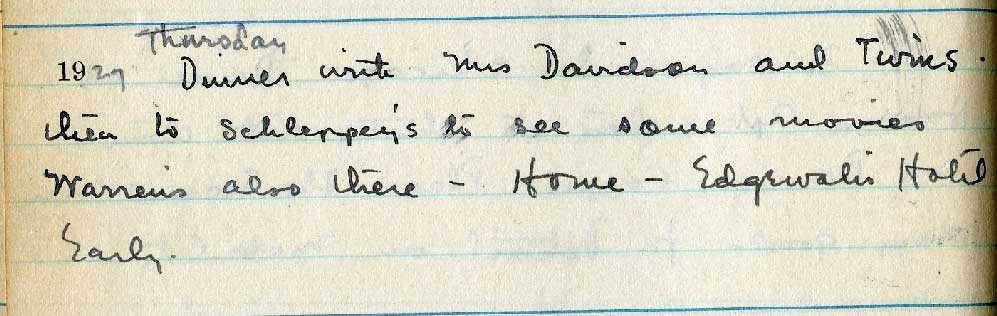 Thursday
1929 Dinner with Mrs Davidson and Twins.
then to Schlepper's to see some movies
Warrens also there - Home - Edgewater Hotel
Early.